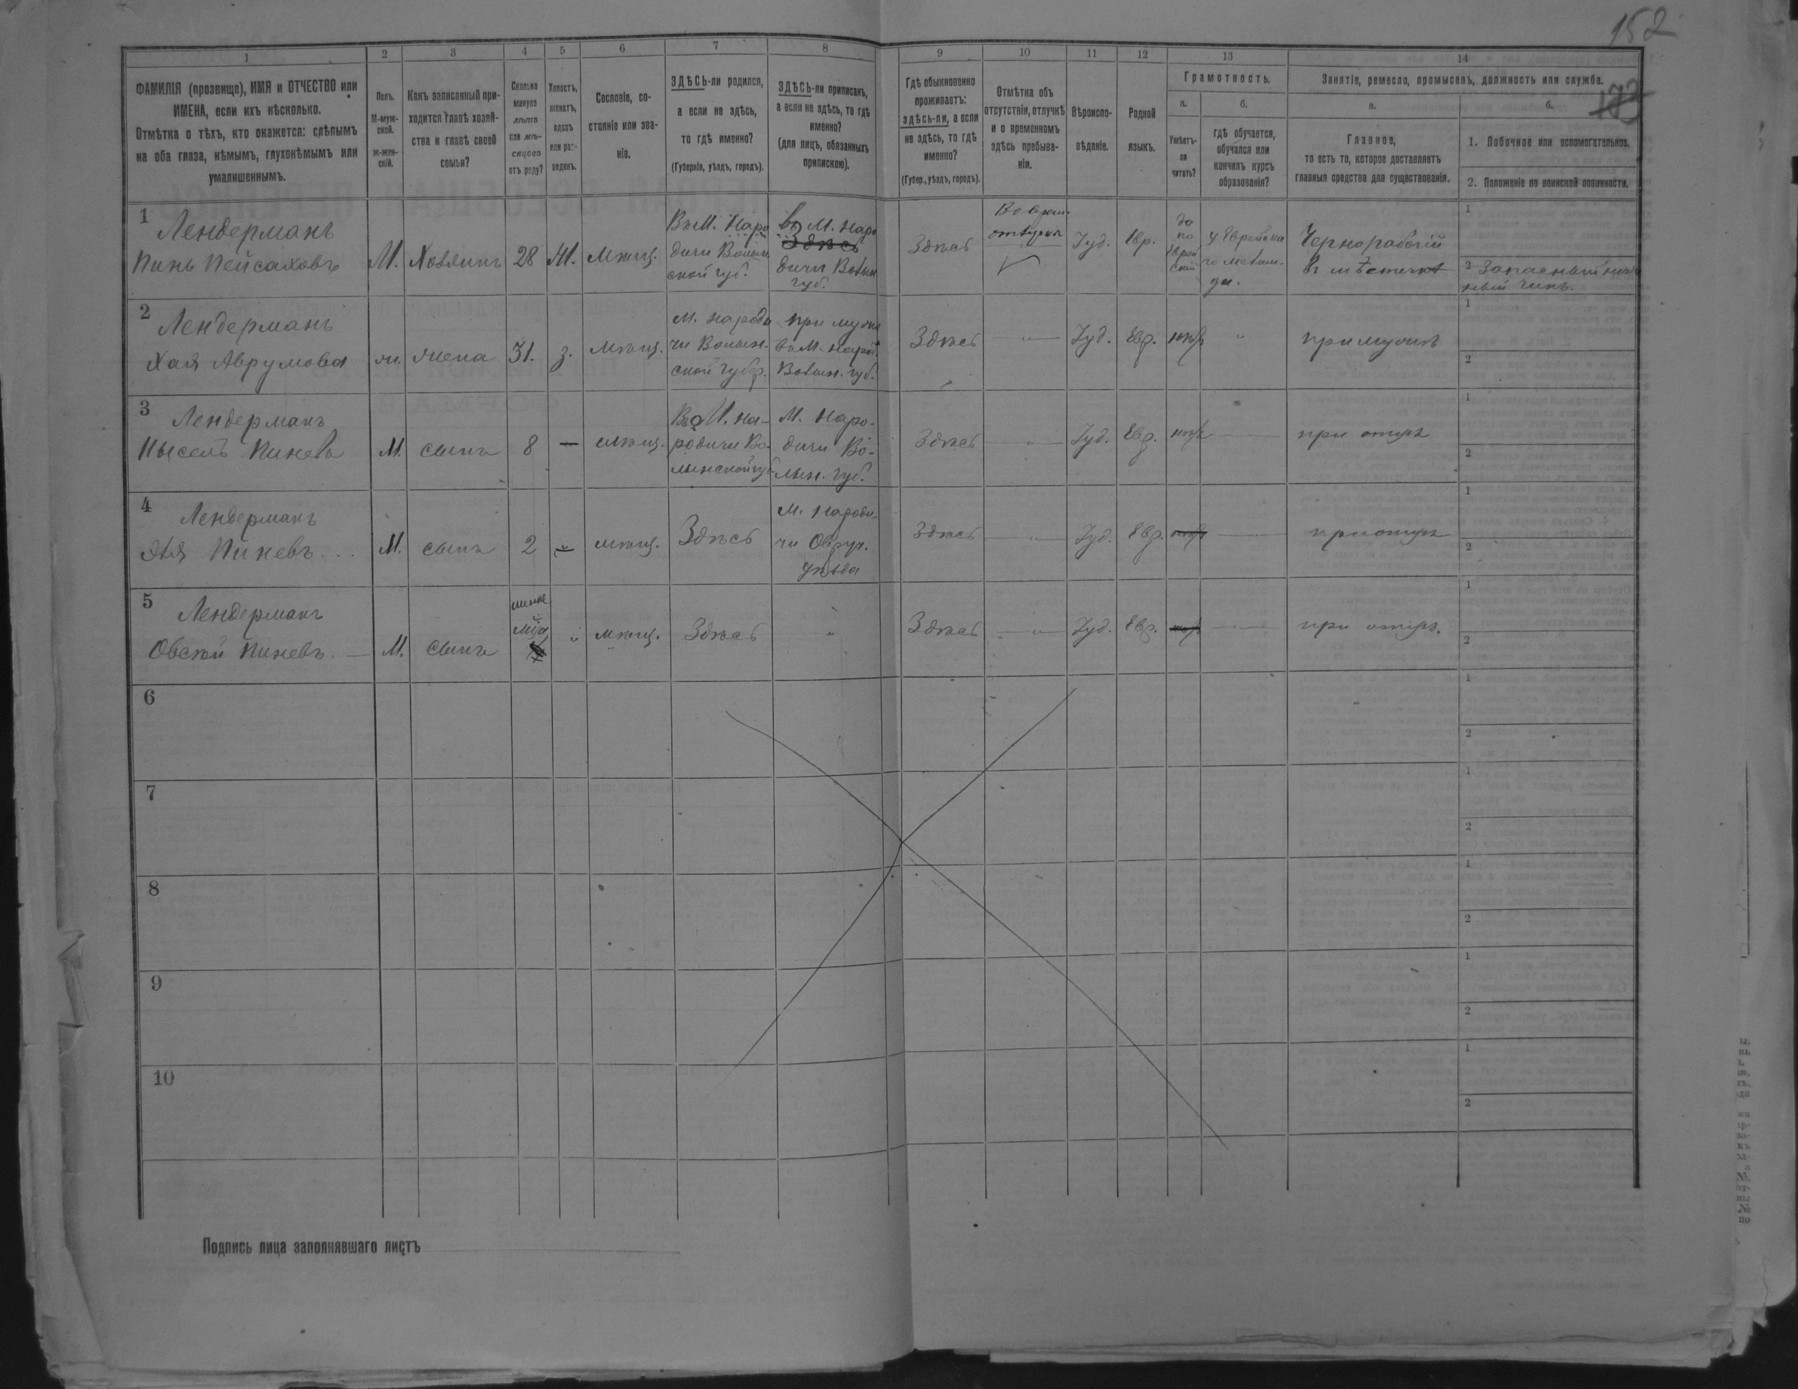 152
173
1 2 3 4 5 6 7 8 9 10 11 12 13 14
ФАМИЛІЯ (прозвище), ИМЯ и ОТЧЕСТВО или
ИМЕНА, если ихъ нѣсколько.
Отмѣтка о тѣхъ, кто окажется: слѣпымъ
на оба глаза, нѣмымъ, глухонѣмымъ или
умалишеннымъ.
Полъ.
М-муж-
ской.
ж-жен-
скій.
Какъ записанный при-
ходится главѣ хозяй-
ства и главѣ своей
семьи?
Сколько
минуло
лѣтъ
или мѣ-
сяцевъ
отъ роду?
Холостъ,
женатъ,
вдовъ
или раз-
веденъ.
Сословіе, со-
стояніе или зва-
ніе.
ЗДѢСЬ-ли родился,
а если не здѣсь,
то гдѣ именно?
(Губернія, уѣздъ, городъ).
ЗДѢСЬ-ли приписанъ,
а если не здѣсь, то гдѣ
именно?
(для лицъ, обязанныхъ
припискою).
Гдѣ обыкновенно
проживаетъ:
здѣсь-ли, а если
не здѣсь, то гдѣ
именно?
(Губер., уѣздъ, городъ).
Отмѣтка объ
отсутствіи, отлучкѣ
и о временномъ
здѣсь пребыва-
ніи.
Вѣроиспо-
вѣданіе.
Родной
языкъ.
Грамотность.
а.
Умѣетъ-
ли
читать?
б.
гдѣ обучается,
обучался или
кончилъ курсъ
образованія?
Занятіе, ремесло, промыселъ, должность или служба.
а.
Главное,
то есть то, которое доставляетъ
главныя средства для существованія.
б.
1. Побочное или вспомогательное.
2. Положеніе по воинской повинности.
1
Лендерманъ
Пинь Пейсаховъ
М.
Хозяинъ
28
Ж.
Мѣщ.
Въ М. Наро
дичи Волын
ской губ.
въ М. Наро
Здѣсь
дичи Волын
губ.
Здѣсь
Во врем.
отлучкѣ
Іуд.
Евр.
до
по
Еврей
ски
у Еврейска
го меламе-
да.
Чернорабочій
въ мѣстечкѣ
1
2 Запасный ниж
ній чинъ.
2
Лендерманъ
Хая Аврумова
ж.
жена
31.
з.
мѣщ.
М. Народи
чи Волын.
ской губер.
при мужѣ
въ М. Народ.
Волын. губ.
Здѣсь
Іуд.
Евр.
нѣтъ
при мужѣ
1
2
3
Лендерманъ
Нысель Пиневъ
М.
сынъ
8
мѣщ.
Въ М. На-
родичи Во-
лынской губ
М. Наро-
дичи Во-
лын. губ.
Здѣсь
Іуд.
Евр.
нѣтъ
при отцѣ
1
2
4
Лендерманъ
Пиневъ
М.
сынъ
2
мѣщ.
Здѣсь
М. Народи-
чи Овруч.
уѣзда
Здѣсь
Іуд.
Евр.
нѣтъ
при отцѣ
1
2
5
Лендерманъ
Овсей Пиневъ
М.
сынъ
менѣе
мѣщ.
Здѣсь
Здѣсь
Іуд.
Евр.
нѣтъ
при отцѣ.
1
2
6
1
2
7
1
2
8
1
2
9
1
2
10
1
2
Подпись лица заполнявшаго листъ